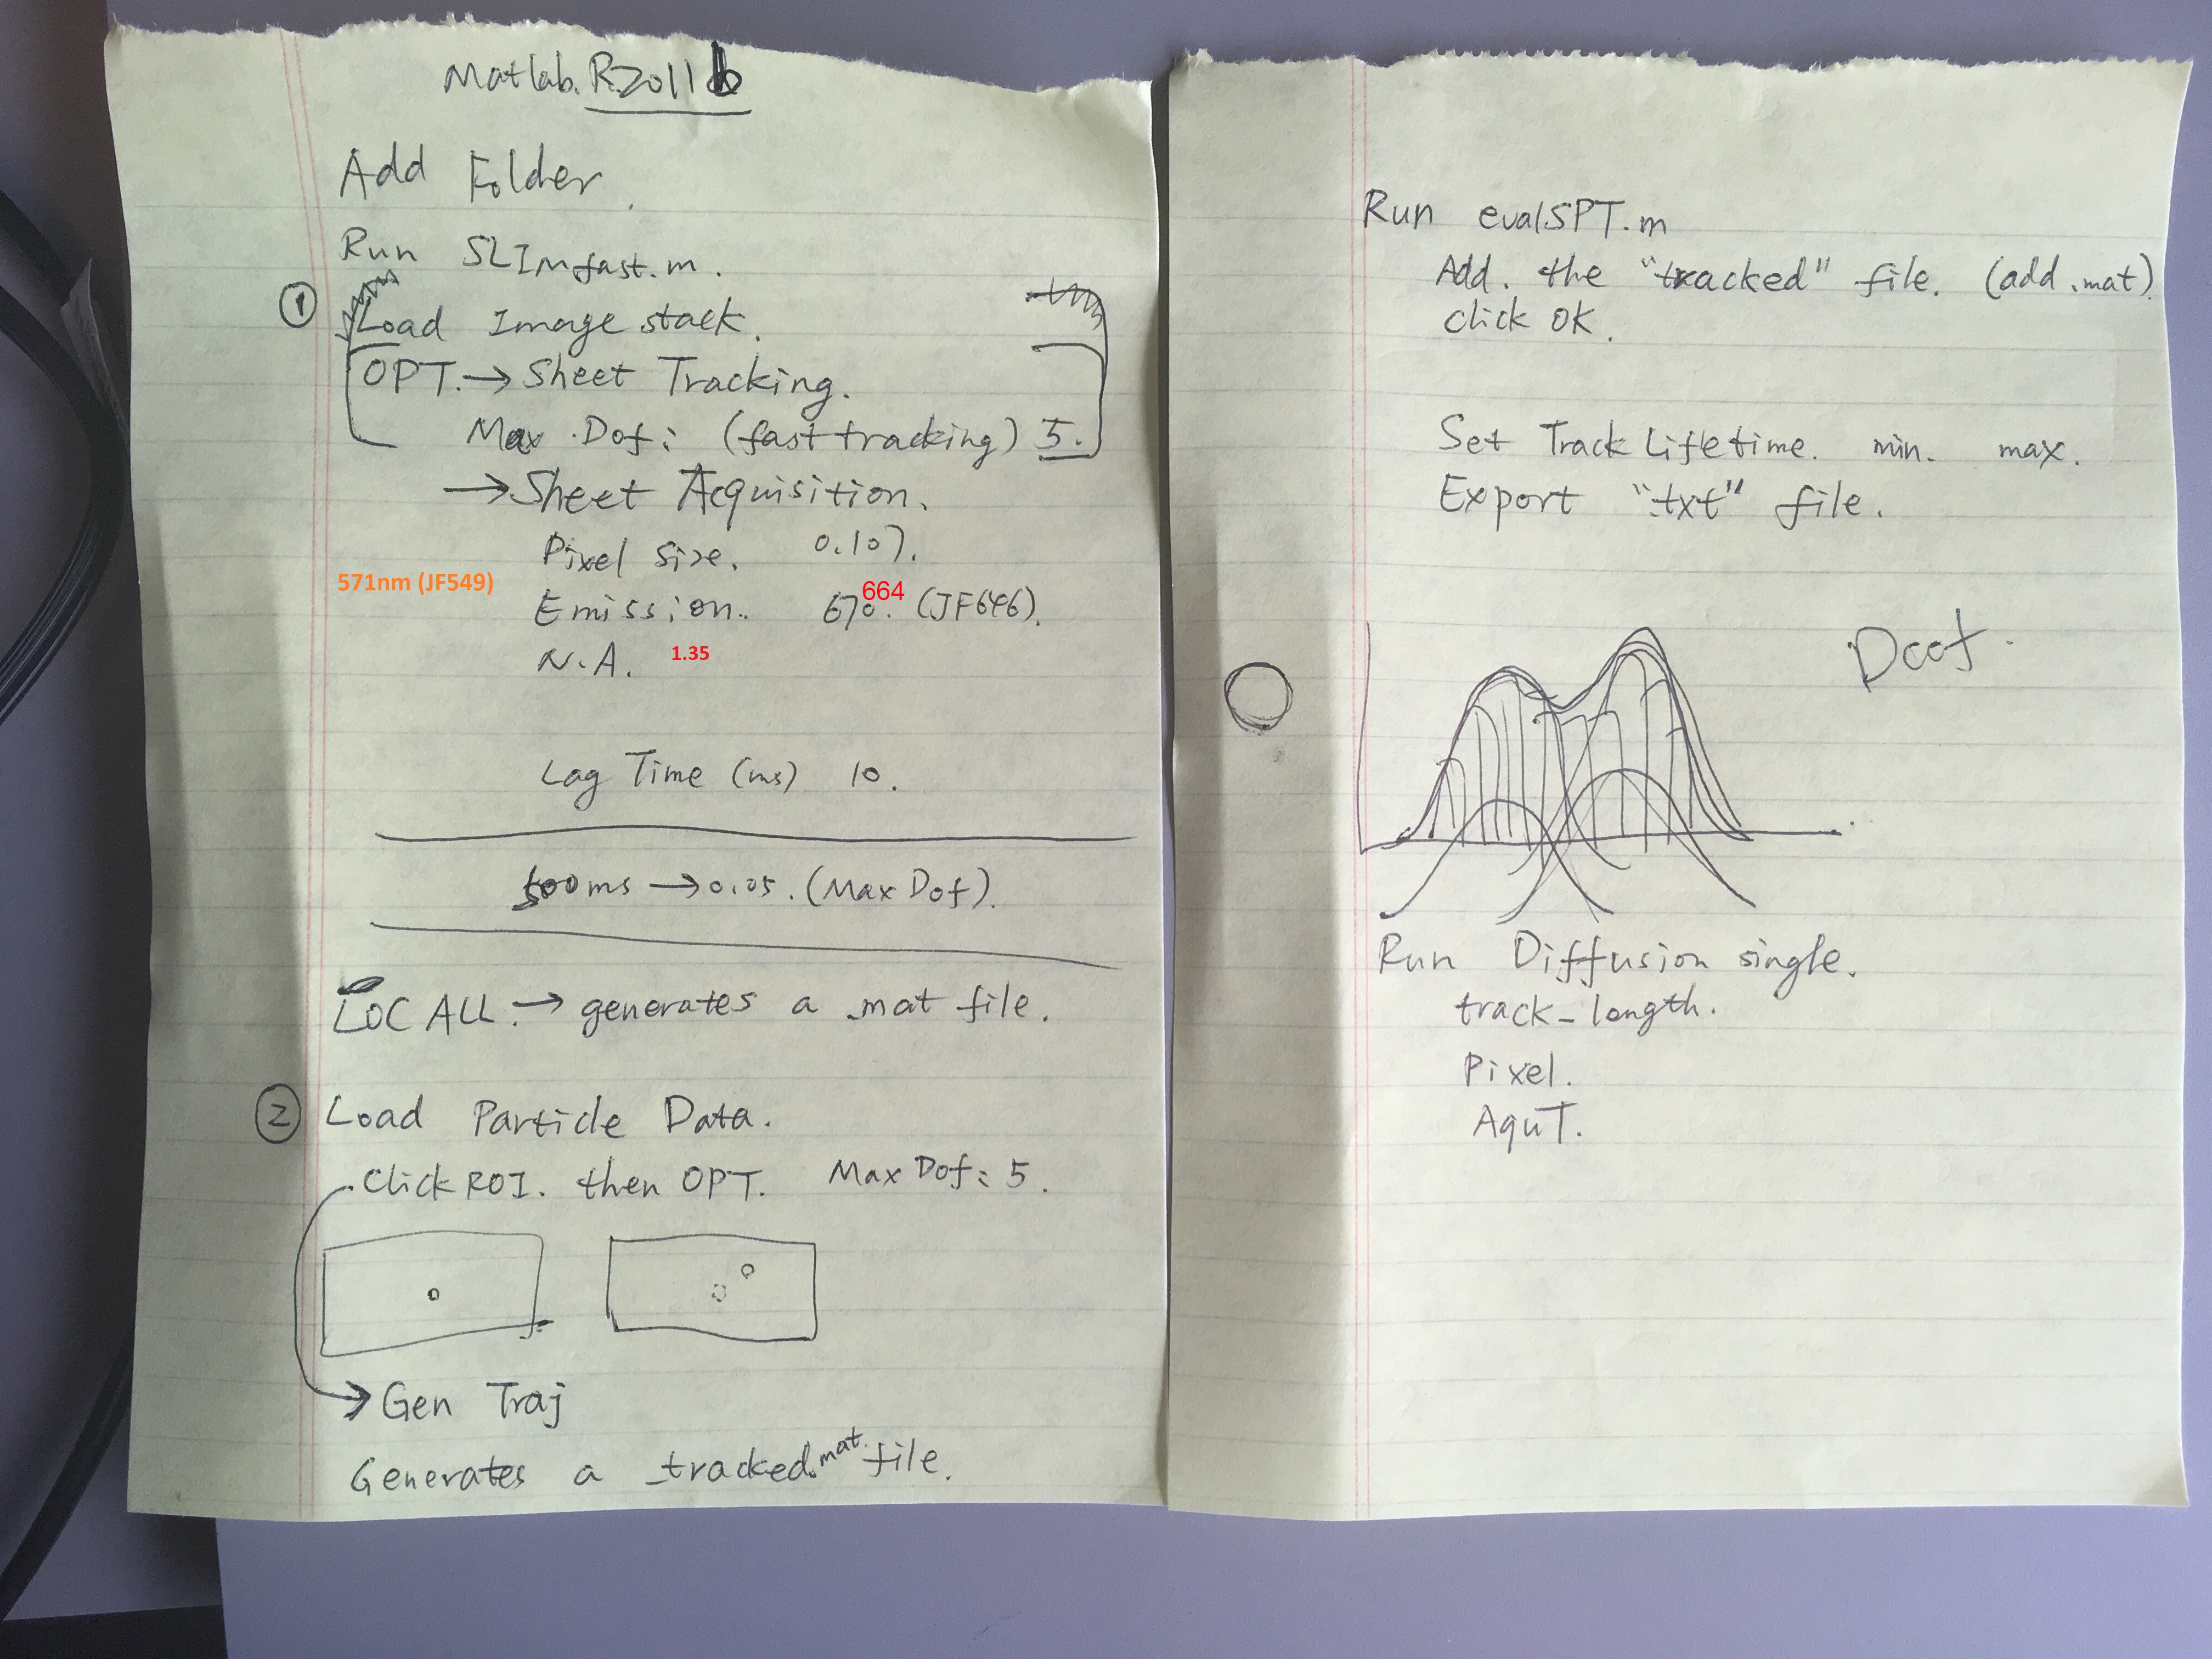 Matlab. R2011b
Add Folder.
Run SLIMfast.m.
① Load Image stack.
OPT. → Sheet Tracking.
Max Dof: (fast tracking) 5.
→ Sheet Acquisition.
Pixel Size. 0.107.
571nm (JF549)
Emission.. 670. 664 (JF646).
N.A. 1.35
Lag Time (ms) 10.
500ms → 0.05. (Max Dof).
LOC ALL. → generates a .mat file.
② Load Particle Data.
Click ROI. then OPT. Max Dof: 5.
→ Gen Traj
Generates a _tracked.mat file.
Run evalSPT.m
Add. the "tracked" file. (add .mat).
click OK.
Set Track Lifetime. min. max.
Export ".txt" file.
Dcof.
Run Diffusion single.
track_length.
Pixel.
AquT.